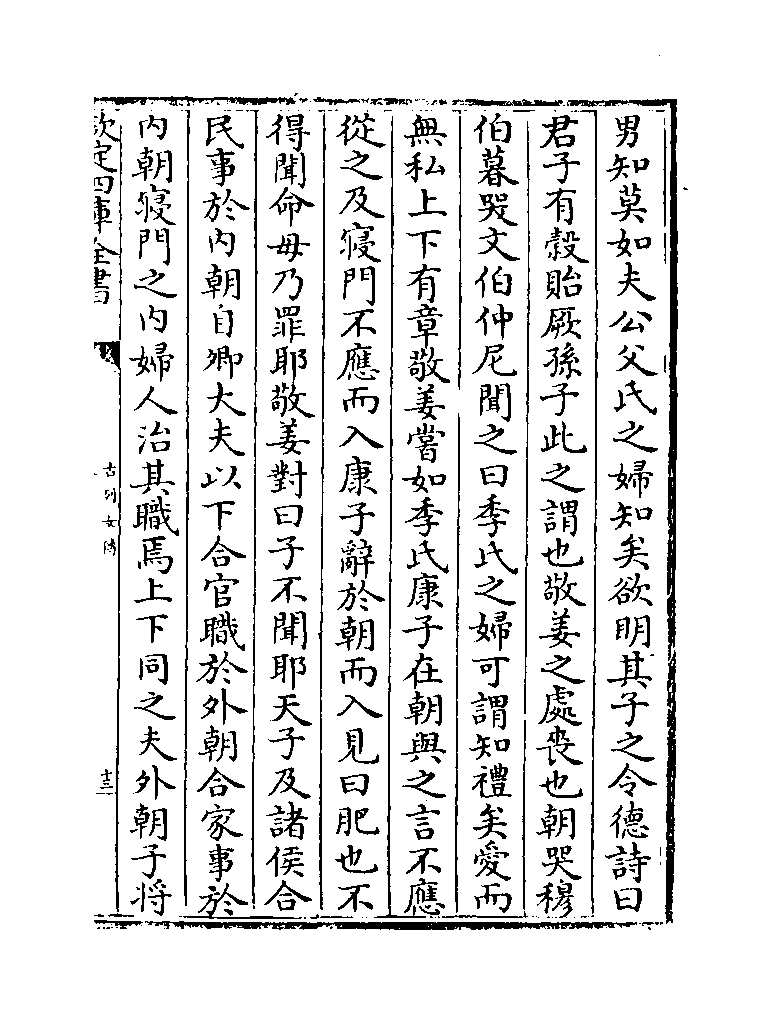 男知莫如夫公父氏之婦知矣欲明其子之令德詩曰
君子有穀貽厥孫子此之謂也敬姜之處喪也朝哭穆
伯暮哭文伯仲尼聞之曰季氏之婦可謂知禮矣愛而
無私上下有章敬姜嘗如季氏康子在朝與之言不應
從之及寢門不應而入康子辭於朝而入見曰肥也不
得聞命毋乃罪耶敬姜對曰子不聞耶天子及諸侯合
民事於内朝自卿大夫以下合官職於外朝合家事於
内朝寢門之内婦人治其職焉上下同之夫外朝子将
欽定四庫全書
古列女傳
十三